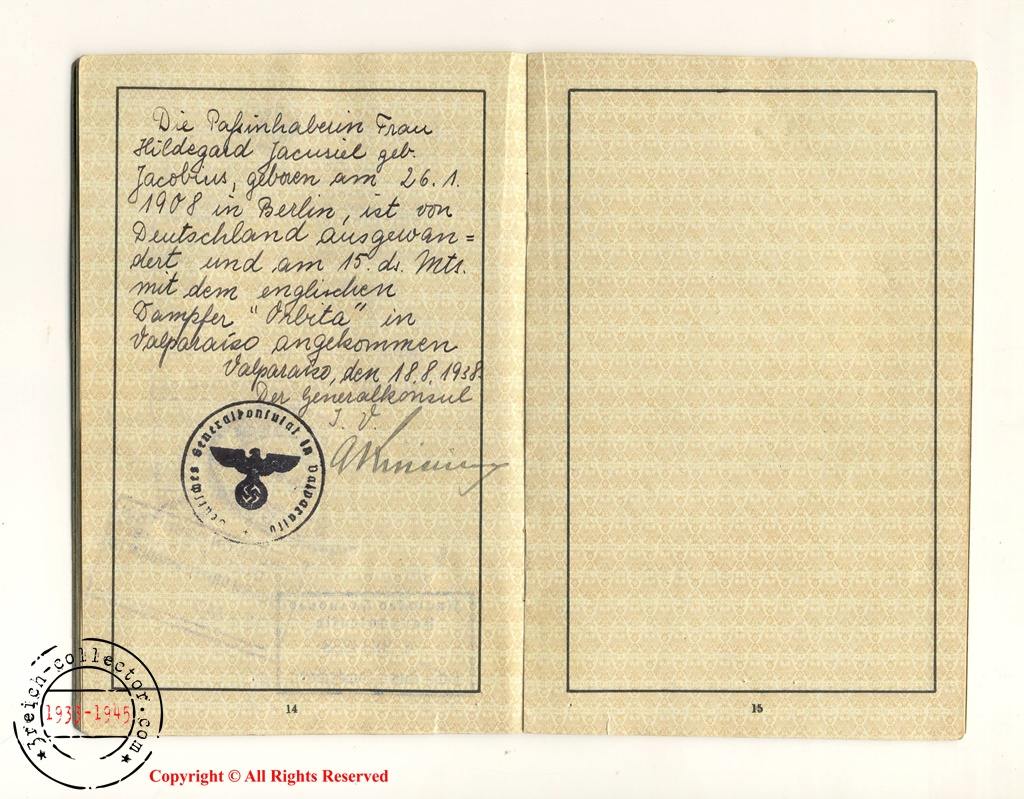 Die Paßinhaberin Frau
Hildegard Jacusiel geb.
Jacobius, geboren am 26.1.
1908 in Berlin, ist von
Deutschland ausgewan=
dert und am 15. ds. Mts.
mit dem englischen
Dampfer "Orbita" in
Valparaiso angekommen
Valparaiso, den 18.8.1938.
Der Generalkonsul
I. V.
Deutsches Generalkonsulat in Valparaiso
14
15
3reich-collector.com
1933-1945
Copyright © All Rights Reserved